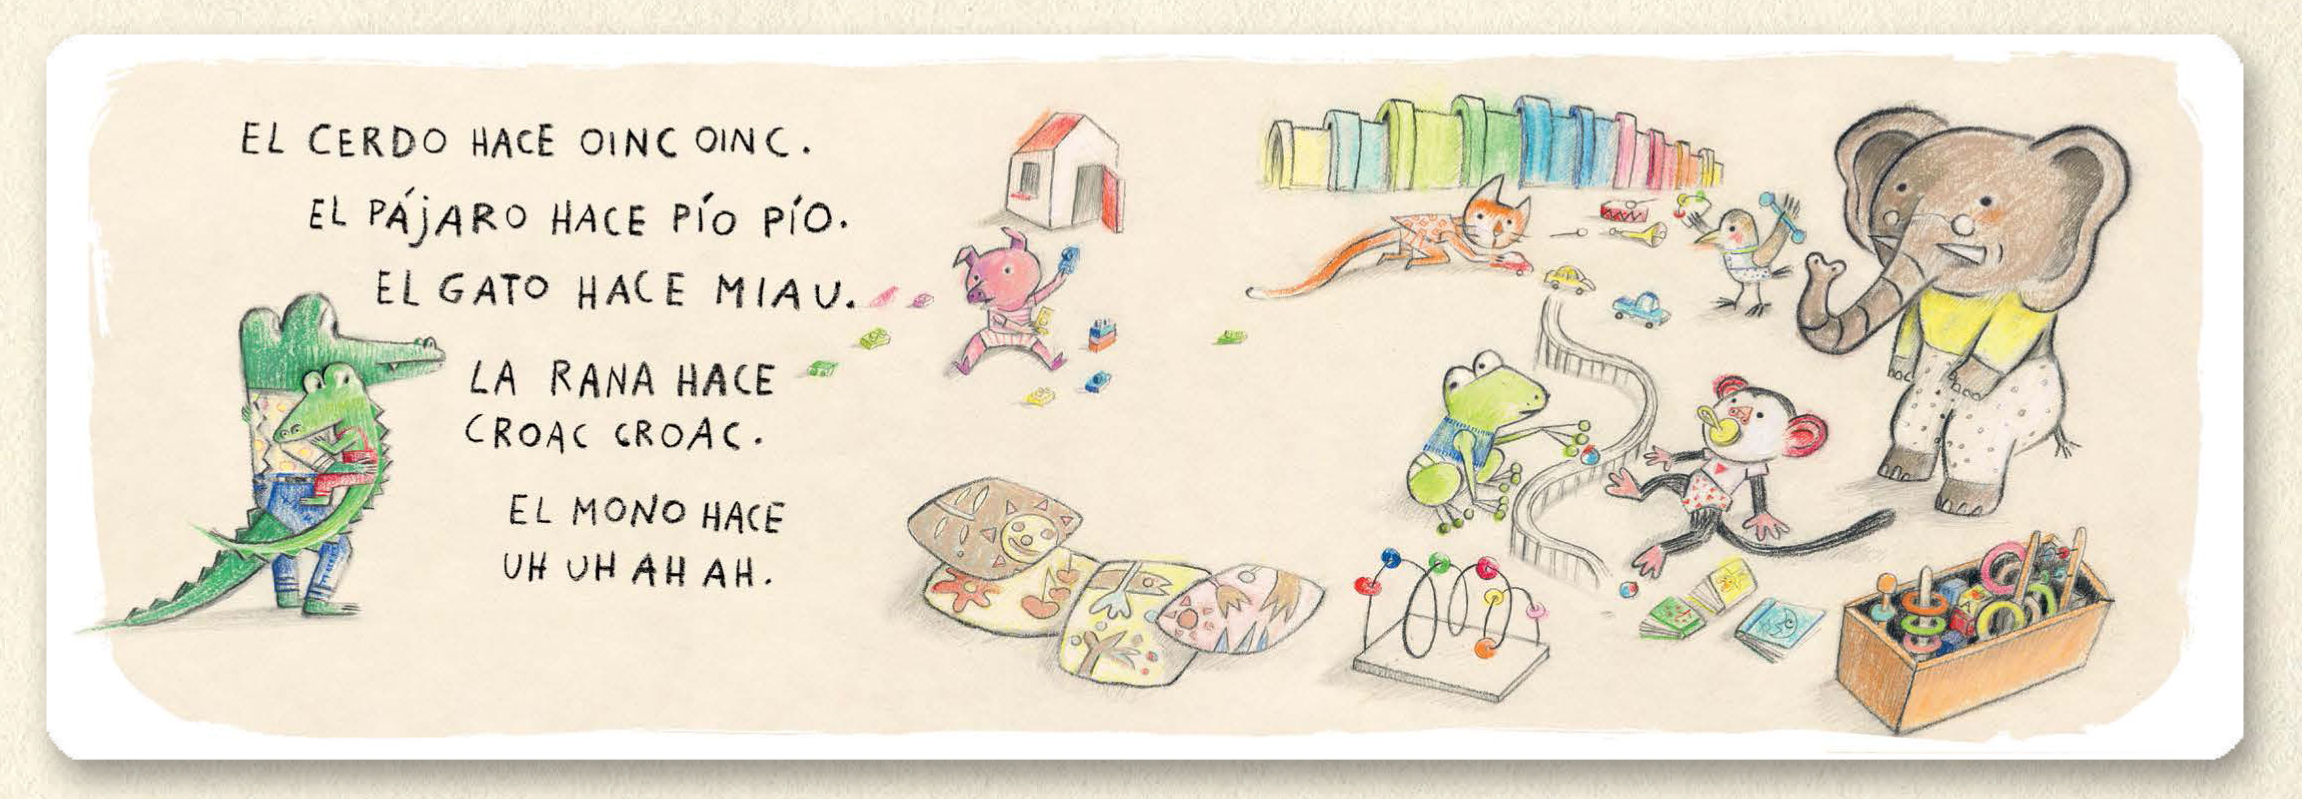 EL CERDO HACE OINC OINC.
EL PÁJARO HACE PÍO PÍO.
EL GATO HACE MIAU.
LA RANA HACE
CROAC CROAC.
EL MONO HACE
UH UH AH AH.